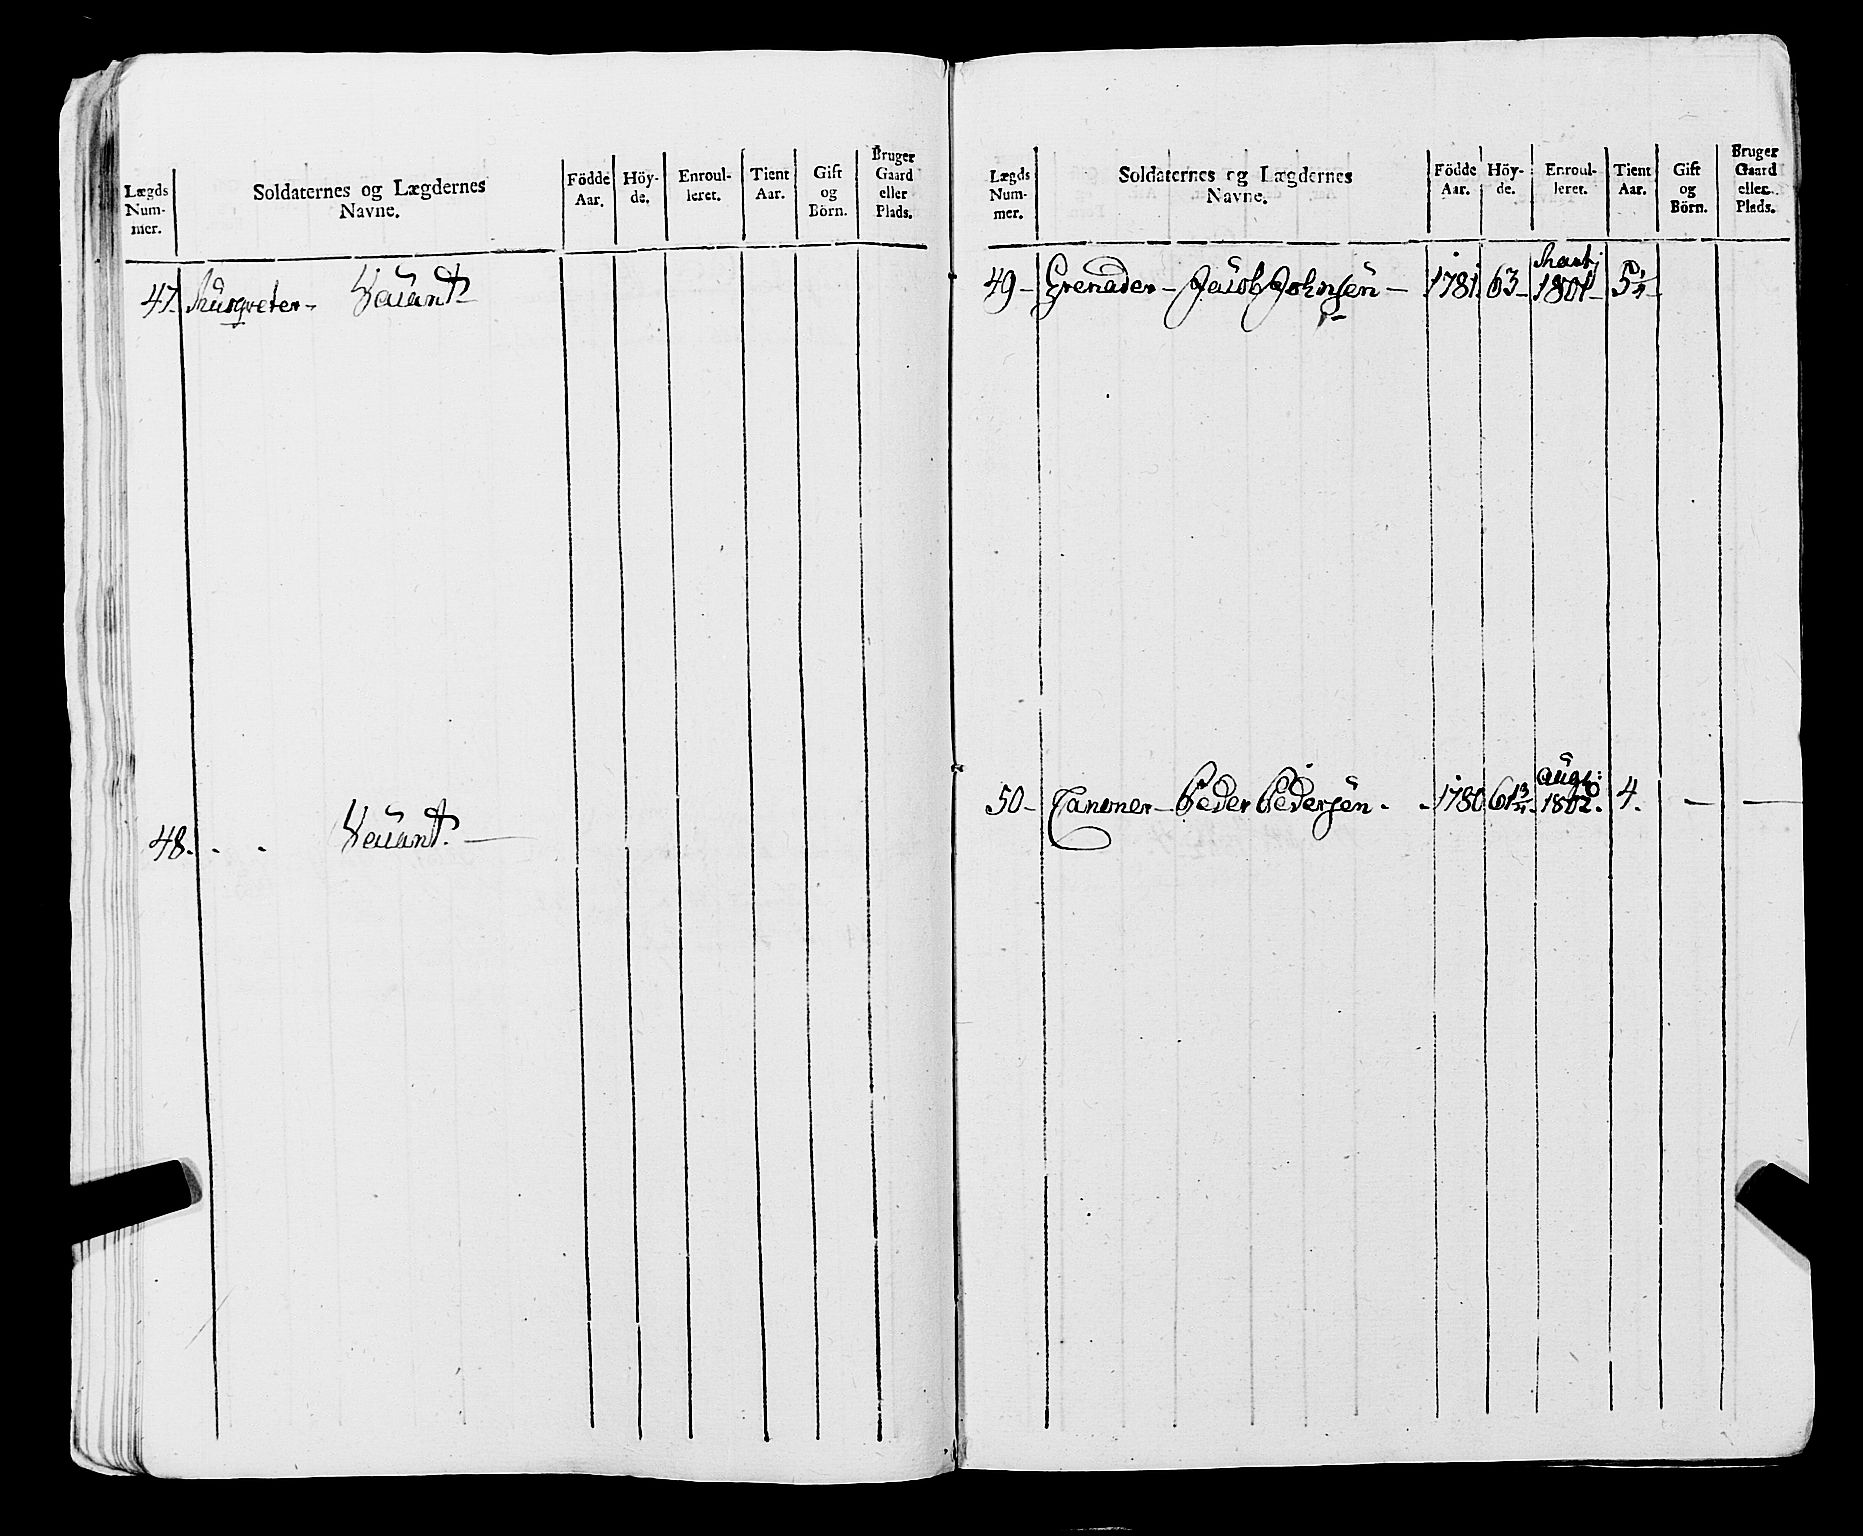 Lægds Num- mer. Soldaternes og Lægdernes Navne. Födde Aar. Höy- de. Enroul- leret. Tient Aar. Gift og Börn. Bruger Gaard eller Plads.
47. Musqveter - Vacant -
48. - - Vacant. -
Lægds Num- mer. Soldaternes og Lægdernes Navne. Födde Aar. Höy- de. Enroul- leret. Tient Aar. Gift og Börn. Bruger Gaard eller Plads.
49 - Grenader - Jacob Johnsen - 1781. 63 - Martj 1801 - 5 1/4 -
50 - Peder Pedersen - 1780 61 3/4 - Augl: 1802. 4. - -